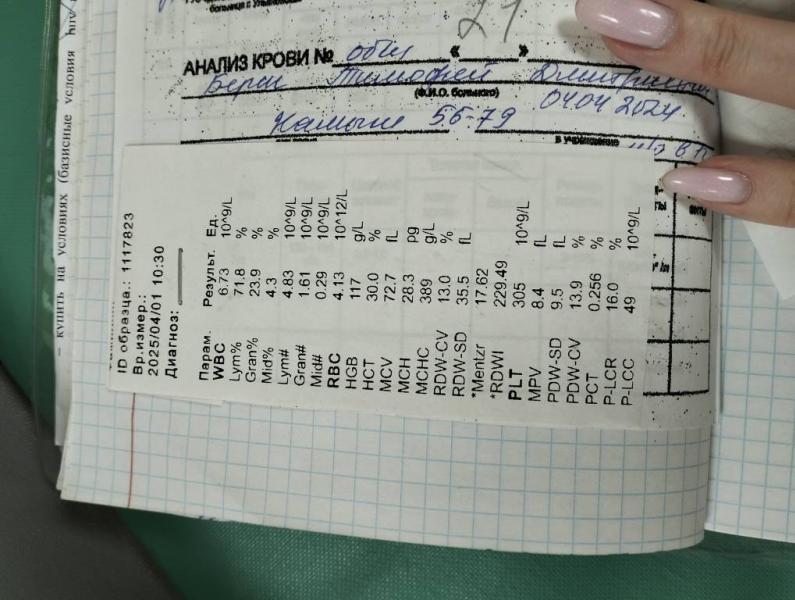 больница г. Ульяновска
21
АНАЛИЗ КРОВИ № общ « »
Тимофей
(Ф.И.О. больного)
04 04 2024
56-79
в учреждение
– купить на условиях (базисные условия
ID образца.: 1117823
Вр.измер.:
2025/04/01 10:30
Диагноз:
Парам. Результ. Ед.
WBC 6.73 10^9/L
Lym% 71.8 %
Gran% 23.9 %
Mid% 4.3 %
Lym# 4.83 10^9/L
Gran# 1.61 10^9/L
Mid# 0.29 10^9/L
RBC 4.13 10^12/L
HGB 117 g/L
HCT 30.0 %
MCV 72.7 fL
MCH 28.3 pg
MCHC 389 g/L
RDW-CV 13.0 %
RDW-SD 35.5 fL
*Mentzr 17.62
*RDWI 229.49
PLT 305 10^9/L
MPV 8.4 fL
PDW-SD 9.5 fL
PDW-CV 13.9 %
PCT 0.256 %
P-LCR 16.0 %
P-LCC 49 10^9/L